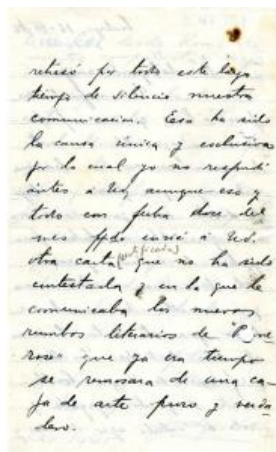 retrasó por todo este largo
tiempo de silencio nuestra
comunicación. Esa ha sido
la causa única y exclusiva
por la cual yo no respondí
antes a Ud, aunque eso y
todo con fecha doce del
mes ppdo envié a Ud.
otra carta (certificada) que no ha sido
contestada y en la que le
comunicaba los nuevos
rumbos literarios de "P
rose" que ya era tiempo
se remozara de una ca-
ja de arte puro y verda
dero.